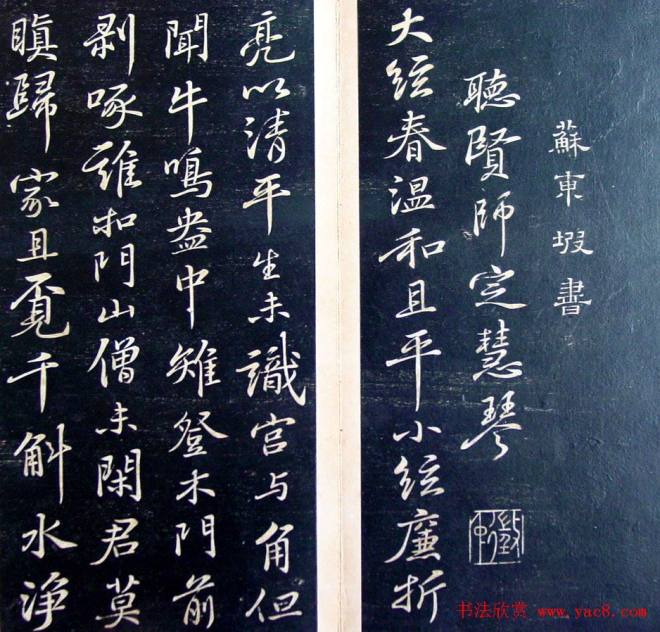 蘇東坡書
聽賢師定慧琴
大絃春温和且平小絃廉折
亮以清平生未識宫与角但
聞牛鳴盎中雉登木門前
剥啄誰扣門山僧未閑君莫
瞋歸家且覓千斛水净
书法欣赏 www.yac8.com